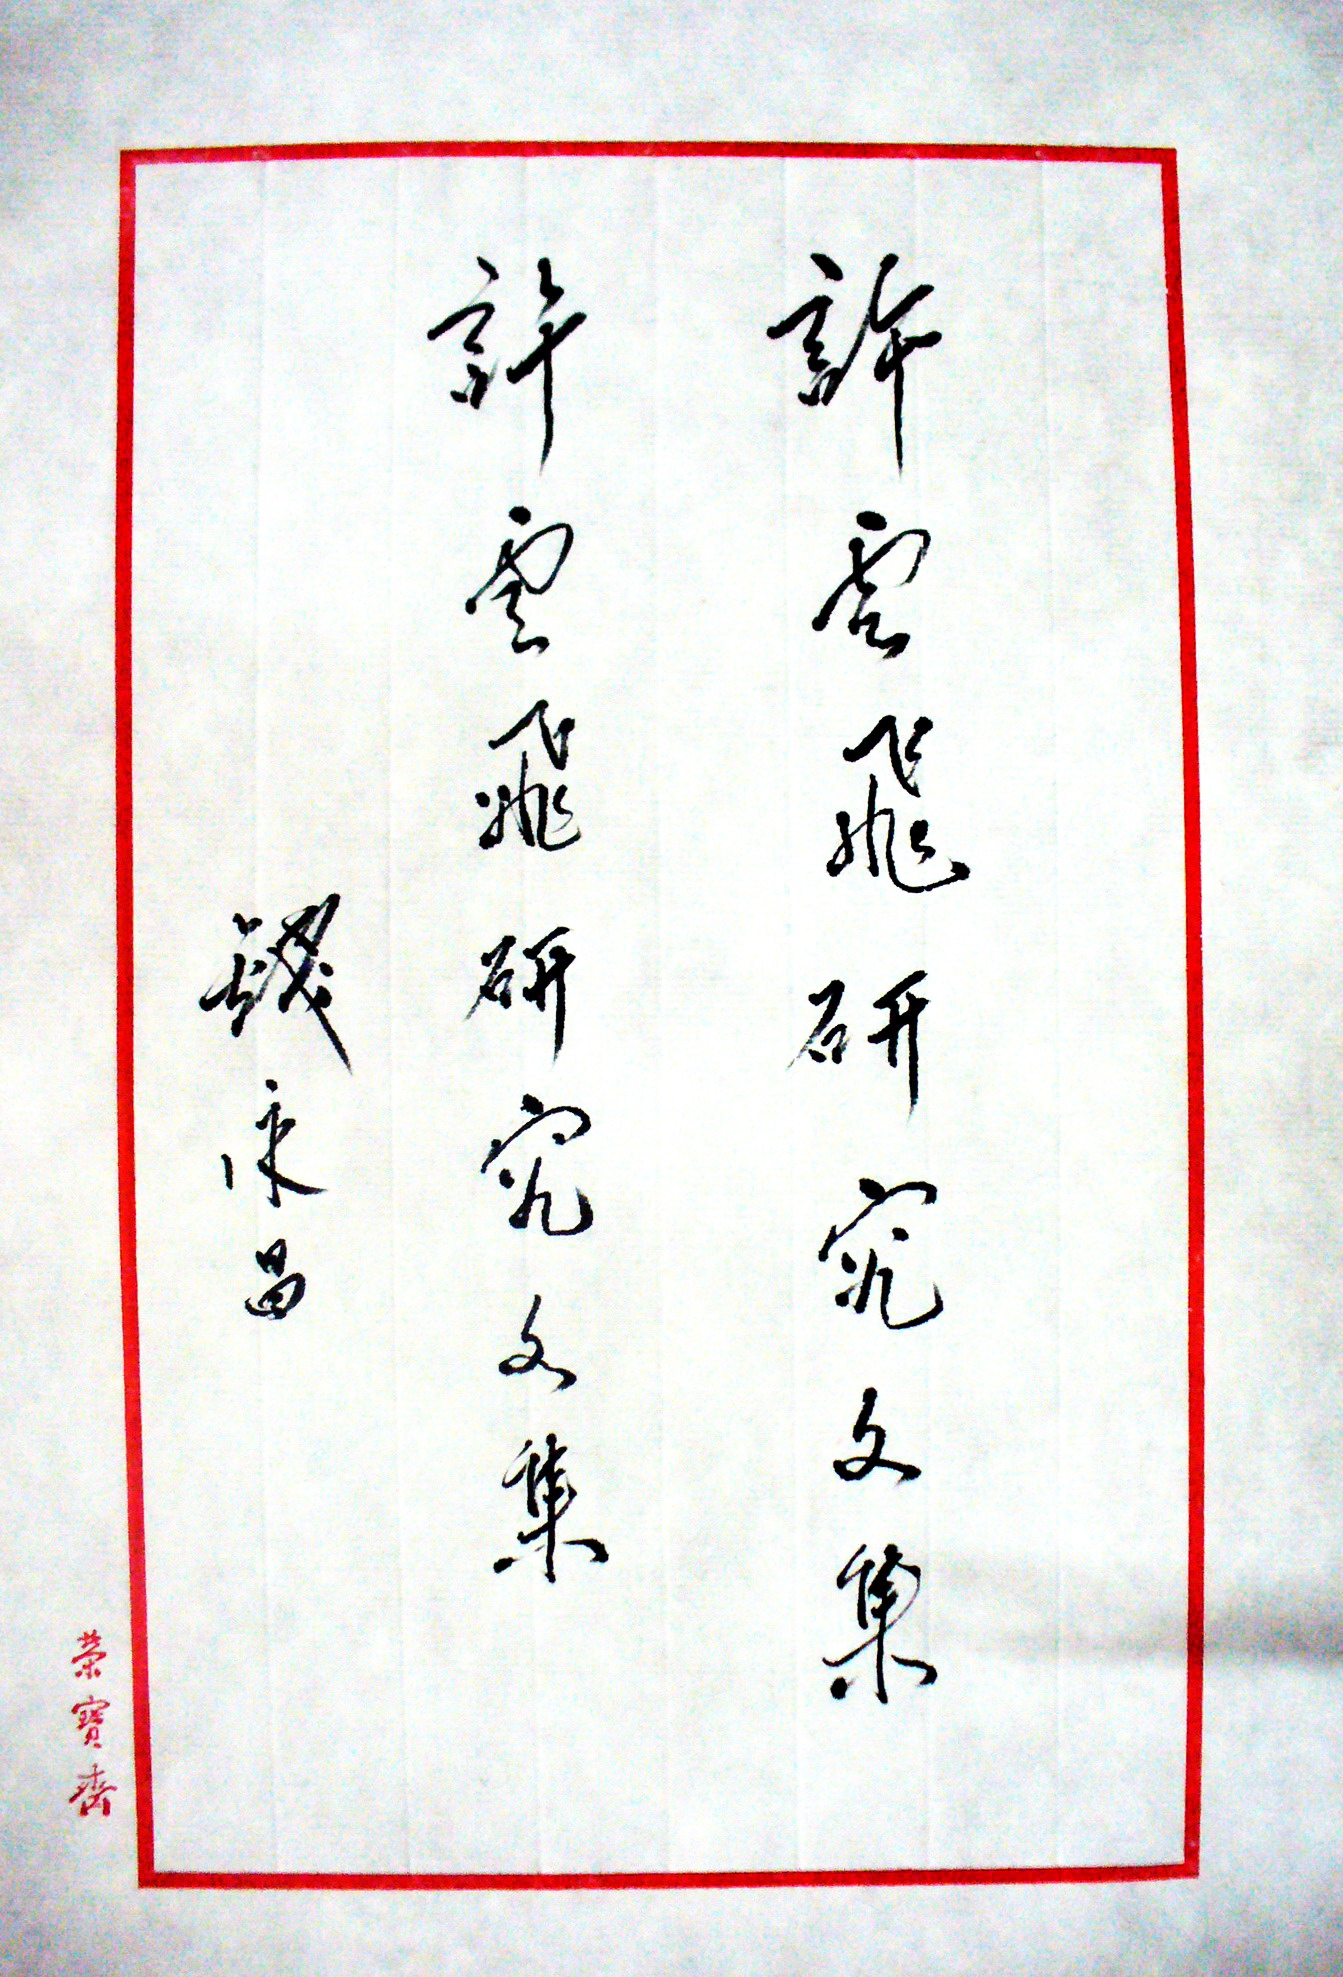 許雲飛研究文集
許雲飛研究文集
錢永昌
榮寶齋